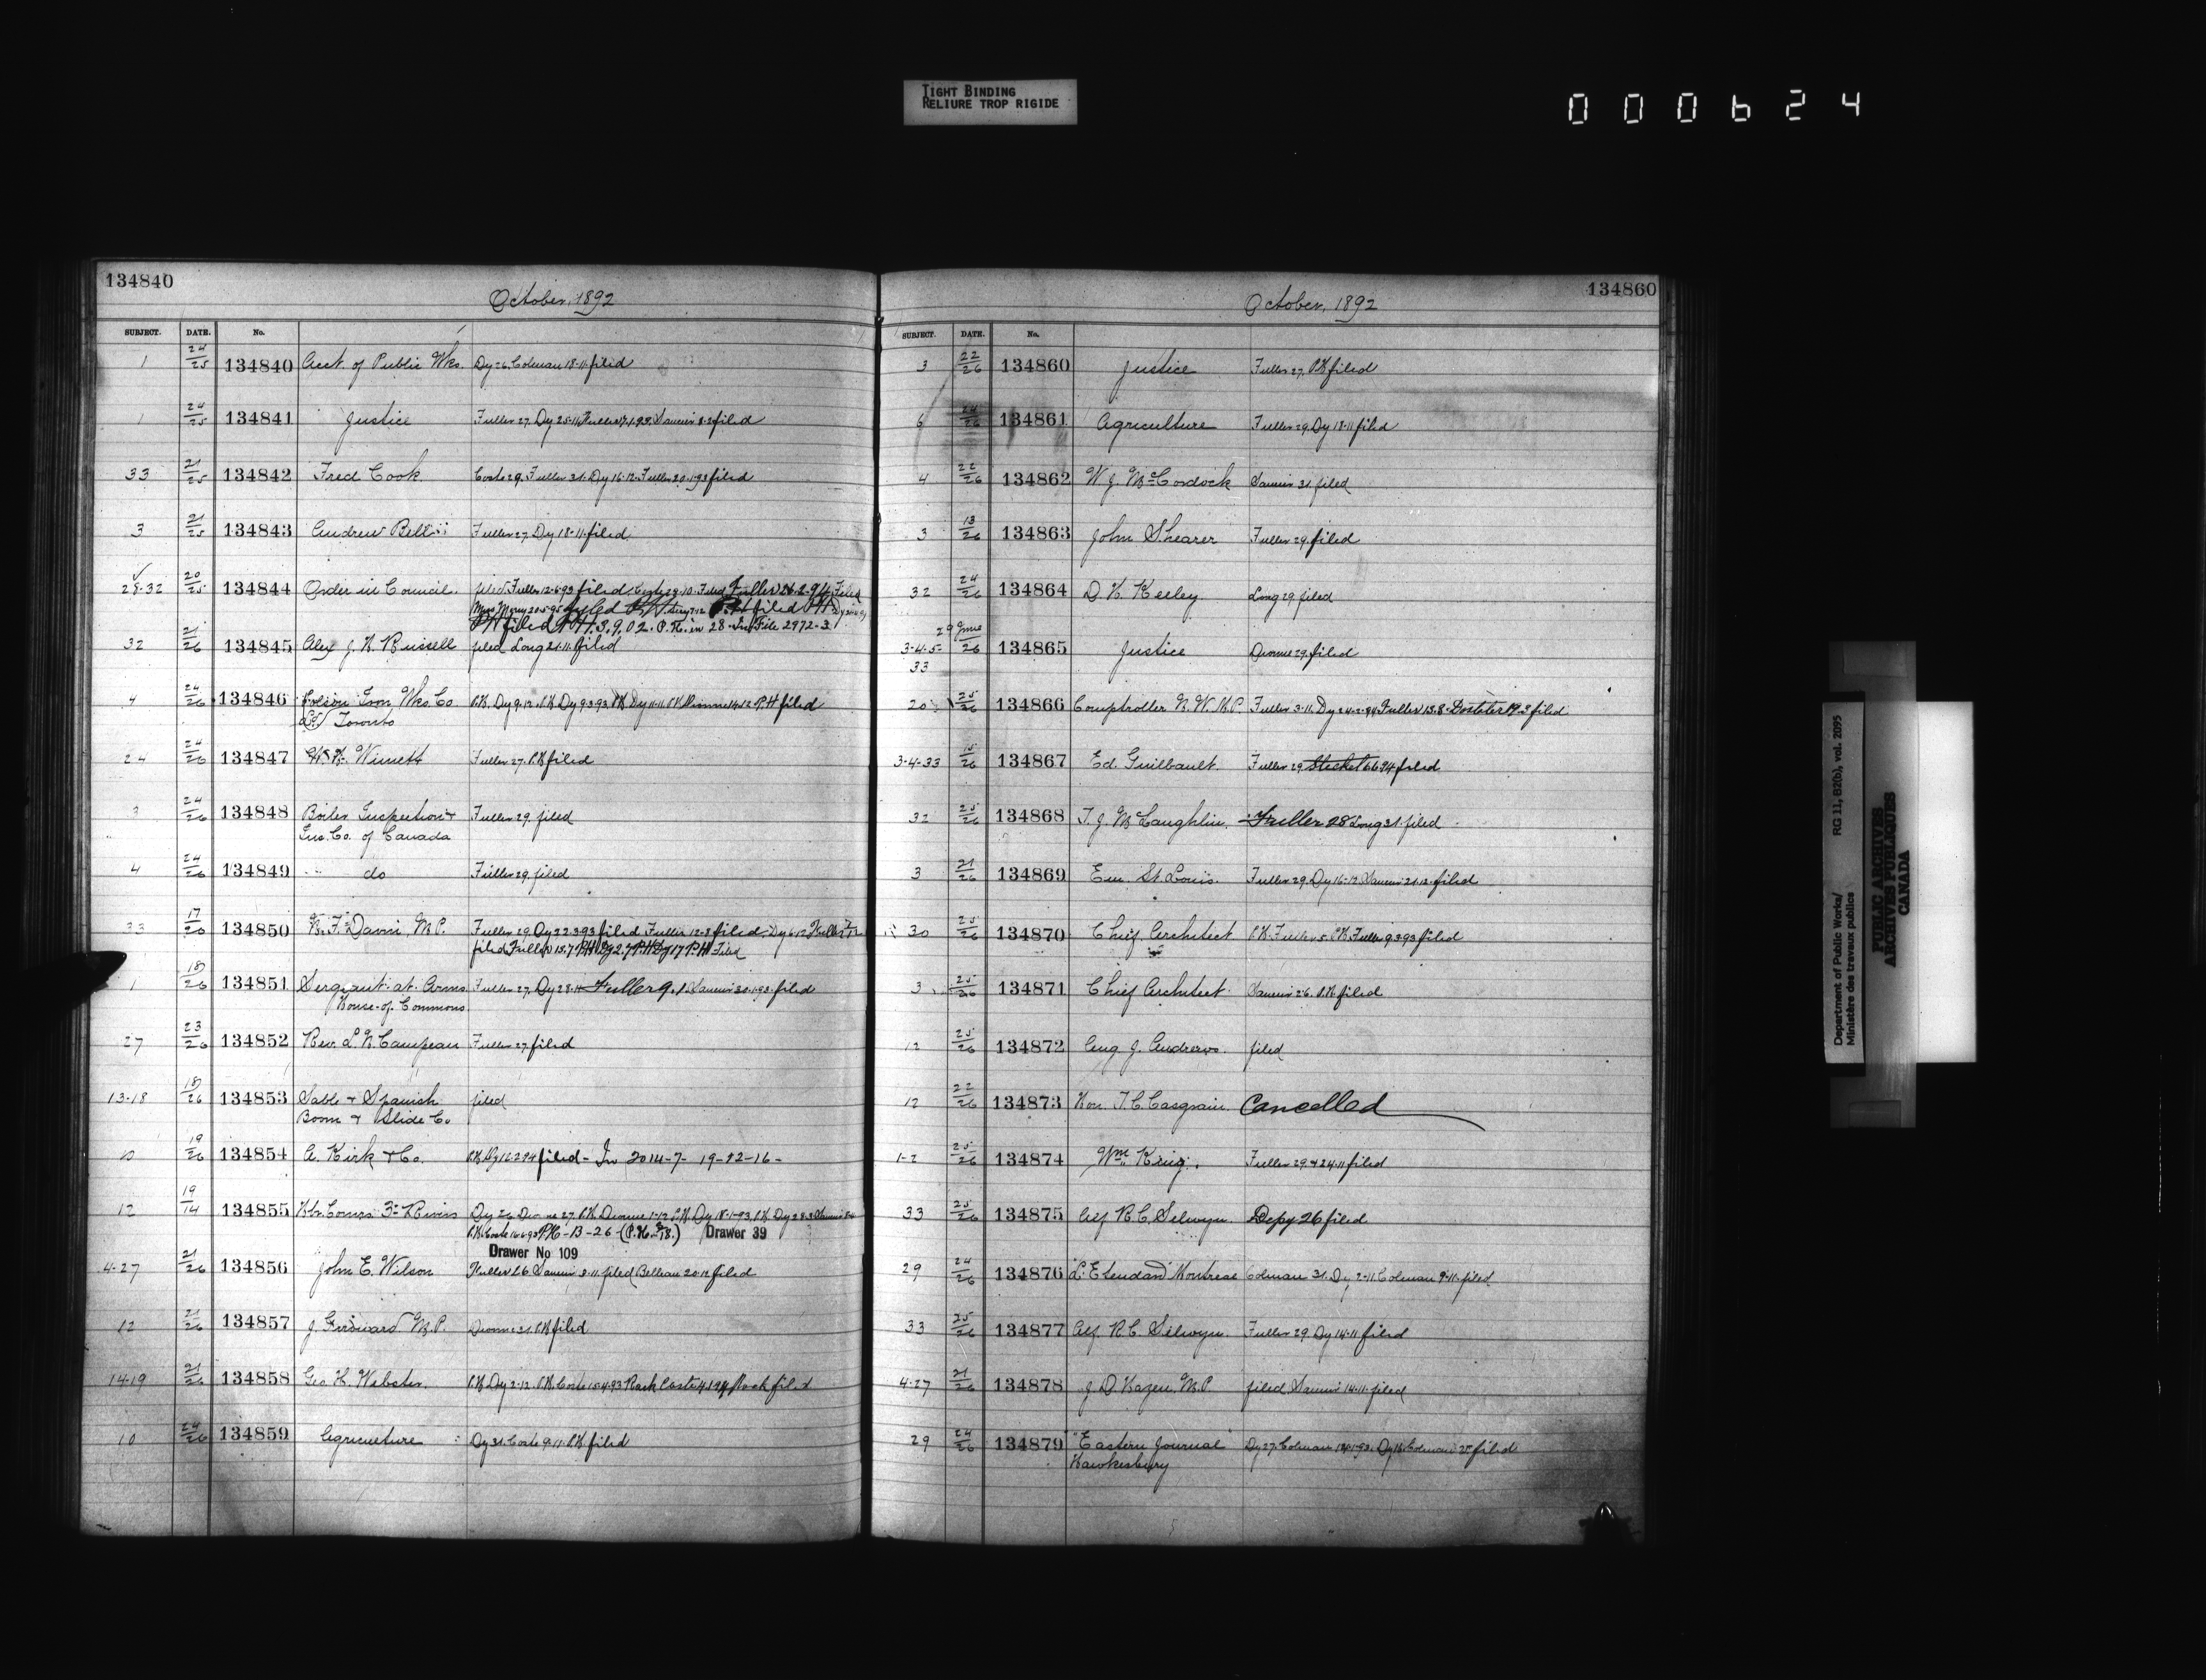 TIGHT BINDING
RELIURE TROP RIGIDE
000624
134840
October, 1892
SUBJECT. DATE. No.
1 24/25 134840 Acct. of Public Wks. Dy 26. Colman 18-11 filed
1 24/25 134841 Justice Fuller 27. Dy 25-11 filed
33 21/25 134842 Fred Cook. Coste 29. Fuller 31. Dy 16-12. Fuller 20-1-93 filed
3 21/25 134843 Andrew Bell Fuller 27. Dy 18-11. filed
28-32 20/25 134844 Order in Council. filed Fuller 12-6-93 filed. Filed Fuller 26-2-94 Filed
filed P.H. filed P.H.
P.H. filed P.H. 3.9.02. P.H. in 28- In File 2972-3
32 21/26 134845 Alex J. H. Russell filed Long 21-11. filed
4 24/26 134846 Polson Iron Wks Co P.H. Dy 9-12. P.H. Dy 9-3-93 P.H. Dy 11-11 P.H. P.H. filed
Ltd Toronto
24 24/26 134847 Wimett Fuller 27. P.H. filed
3 24/26 134848 Boiler Inspection + Fuller 29. filed
Ins. Co. of Canada
4 24/26 134849 do Fuller 29. filed
33 17/26 134850 N. F. Davin, M.P. Fuller 29. Dy 22-3-93 filed Fuller 12-8 filed. Dy 6-12 Fuller
filed Fuller 15.7 P.H. Dy 27 P.H. Dy 17 P.H. Filed
1 18/26 134851 Sergeant-at-Arms Fuller 27. Dy 28-11 Fuller 9.1. 30-1-93. filed
House of Commons
27 23/26 134852 Rev. L. N. Campeau Fuller 27. filed
13-18 18/26 134853 Sable + Spanish filed
Boom + Slide Co.
10 19/26 134854 A. Kirk + Co. P.H. Dy 16-2-94 filed - In 2014-7- 19-12-16-
12 19/14 134855 Hbr. Comrs. 3-Rivers Dy 26 Dionne 27. P.H. Dionne 1-12 P.H. Dy 18-1-93. P.H. Dy 28-3
P.H. Coste 16-6-93 P.H. - B - 26 - Drawer 39
Drawer No 109
4-27 21/26 134856 John E. Wilson Fuller 26 8-11. filed Belleau 20-12 filed
12 21/26 134857 J. Girouard M.P. Dionne 31. P.H. filed
14-19 21/26 134858 Geo. H. Webster. P.H. Dy 2-12. P.H. Coste 15-4-93 Coste filed
10 24/26 134859 Agriculture Dy 31. Coste 9-11. P.H. filed
134860
October, 1892
SUBJECT. DATE. No.
3 22/26 134860 Justice Fuller 27. P.H. filed
6 24/26 134861 Agriculture Fuller 29. Dy 18-11 filed
4 22/26 134862 W. J. McCordock 31. filed
3 13/26 134863 John Shearer Fuller 29. filed
32 24/26 134864 D. H. Keeley. Long 29 filed
29 June
3-4-5- /26 134865 Justice Dionne 29. filed
33
20 25/26 134866 Comptroller N.W.M.P. Fuller 3-11. Dy 24-2-94 Fuller 13.8- filed
3-4-33 15/26 134867 Ed. Guilbault. Fuller 29 filed
32 25/26 134868 T. J. McLaughlin. Fuller 28 Long 31. filed
3 21/26 134869 Em. St. Louis. Fuller 29. Dy 16-12 21-12. filed
30 25/26 134870 Chief Architect P.H. Fuller 5. P.H. Fuller 9-3-93 filed
3 25/26 134871 Chief Architect 26. P.H. filed
12 25/26 134872 Aug. J. Andrews. filed
12 22/26 134873 Hon. T. C. Casgrain. Cancelled
1-2 25/26 134874 Wm King. Fuller 29. + 24-11 filed
33 25/26 134875 Alf. R. C. Selwyn. Depy 26 filed
29 24/26 134876 "L'Etendard" Montreal Colman 31. Dy 2-11 Colman 9-11. filed
33 25/26 134877 Alf. R. C. Selwyn. Fuller 29. Dy 14-11 filed
4-27 21/26 134878 J. D. Hazen, M.P. filed 14-11. filed
29 24/26 134879 "Eastern Journal" Dy 27. Colman filed
Hawkesbury
Department of Public Works/ RG 11, B2(b), vol. 2095
Ministère des travaux publics
PUBLIC ARCHIVES
ARCHIVES PUBLIQUES
CANADA